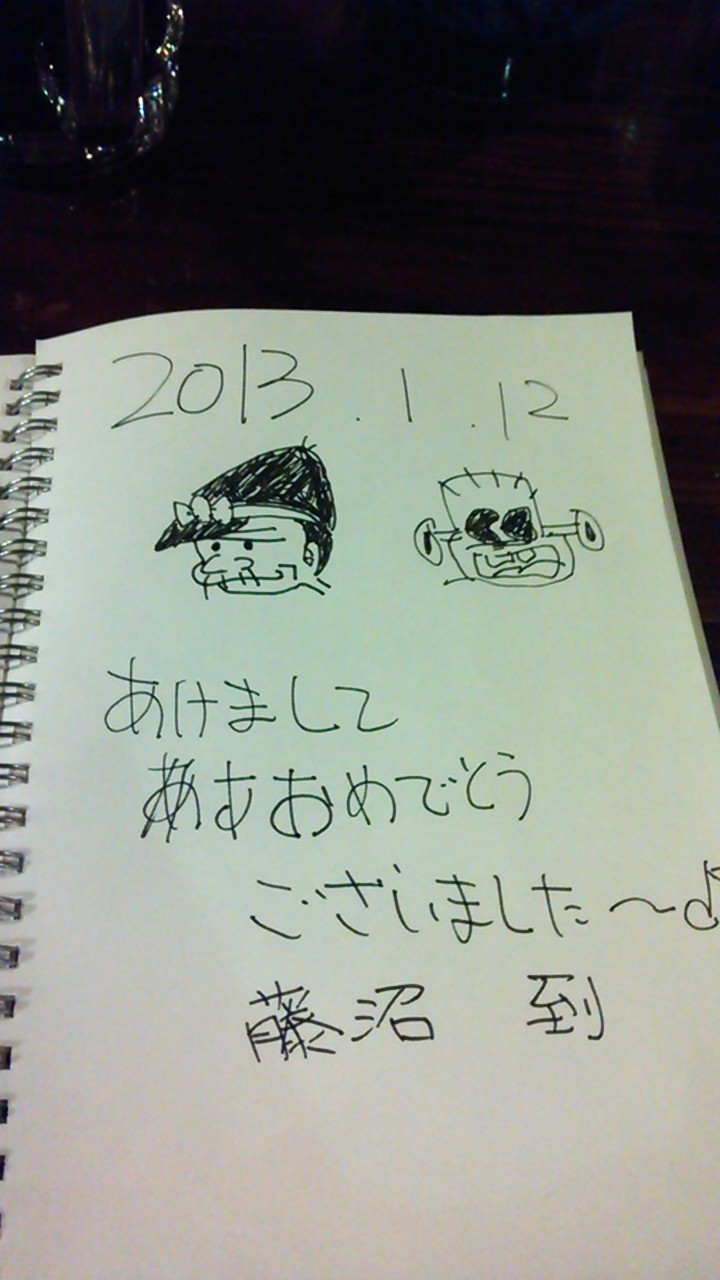 2013.1.12
あけまして
ああおめでとう
ございました〜♪
藤沼 到